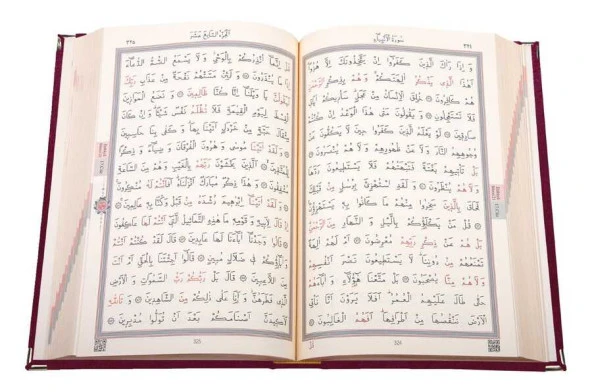 سورة الأنبياء
وَإِذَا رَآكَ الَّذِينَ كَفَرُوا إِنْ يَتَّخِذُونَكَ إِلَّا هُزُوًا
أَهَذَا الَّذِي يَذْكُرُ آلِهَتَكُمْ وَهُمْ بِذِكْرِ الرَّحْمَنِ
هُمْ كَافِرُونَ خُلِقَ الْإِنْسَانُ مِنْ عَجَلٍ سَأُرِيكُمْ آيَاتِي
فَلَا تَسْتَعْجِلُونِ وَيَقُولُونَ مَتَى هَذَا الْوَعْدُ إِنْ كُنْتُمْ
صَادِقِينَ لَوْ يَعْلَمُ الَّذِينَ كَفَرُوا حِينَ لَا يَكُفُّونَ عَنْ
وُجُوهِهِمُ النَّارَ وَلَا عَنْ ظُهُورِهِمْ وَلَا هُمْ يُنْصَرُونَ
بَلْ تَأْتِيهِمْ بَغْتَةً فَتَبْهَتُهُمْ فَلَا يَسْتَطِيعُونَ رَدَّهَا
وَلَا هُمْ يُنْظَرُونَ وَلَقَدِ اسْتُهْزِئَ بِرُسُلٍ مِنْ قَبْلِكَ
فَحَاقَ بِالَّذِينَ سَخِرُوا مِنْهُمْ مَا كَانُوا بِهِ يَسْتَهْزِؤُنَ
قُلْ مَنْ يَكْلَؤُكُمْ بِاللَّيْلِ وَالنَّهَارِ مِنَ الرَّحْمَنِ
بَلْ هُمْ عَنْ ذِكْرِ رَبِّهِمْ مُعْرِضُونَ أَمْ لَهُمْ آلِهَةٌ
تَمْنَعُهُمْ مِنْ دُونِنَا لَا يَسْتَطِيعُونَ نَصْرَ أَنْفُسِهِمْ
وَلَا هُمْ مِنَّا يُصْحَبُونَ بَلْ مَتَّعْنَا هَؤُلَاءِ وَآبَاءَهُمْ
حَتَّى طَالَ عَلَيْهِمُ الْعُمُرُ أَفَلَا يَرَوْنَ أَنَّا نَأْتِي
الْأَرْضَ نَنْقُصُهَا مِنْ أَطْرَافِهَا أَفَهُمُ الْغَالِبُونَ
الجزء السابع عشر
٣٢٥
قُلْ إِنَّمَا أُنْذِرُكُمْ بِالْوَحْيِ وَلَا يَسْمَعُ الصُّمُّ الدُّعَاءَ
إِذَا مَا يُنْذَرُونَ وَلَئِنْ مَسَّتْهُمْ نَفْحَةٌ مِنْ عَذَابِ رَبِّكَ
لَيَقُولُنَّ يَا وَيْلَنَا إِنَّا كُنَّا ظَالِمِينَ وَنَضَعُ الْمَوَازِينَ
الْقِسْطَ لِيَوْمِ الْقِيَمَةِ فَلَا تُظْلَمُ نَفْسٌ شَيْئًا وَإِنْ كَانَ
مِثْقَالَ حَبَّةٍ مِنْ خَرْدَلٍ أَتَيْنَا بِهَا وَكَفَى بِنَا حَاسِبِينَ
وَلَقَدْ آتَيْنَا مُوسَى وَهَرُونَ الْفُرْقَانَ وَضِيَاءً وَذِكْرًا
لِلْمُتَّقِينَ الَّذِينَ يَخْشَوْنَ رَبَّهُمْ بِالْغَيْبِ وَهُمْ مِنَ السَّاعَةِ
مُشْفِقُونَ وَهَذَا ذِكْرٌ مُبَارَكٌ أَنْزَلْنَاهُ أَفَأَنْتُمْ لَهُ مُنْكِرُونَ
وَلَقَدْ آتَيْنَا إِبْرَهِيمَ رُشْدَهُ مِنْ قَبْلُ وَكُنَّا بِهِ عَالِمِينَ
إِذْ قَالَ لِأَبِيهِ وَقَوْمِهِ مَا هَذِهِ التَّمَاثِيلُ الَّتِي أَنْتُمْ لَهَا عَاكِفُونَ
قَالُوا وَجَدْنَا آبَاءَنَا لَهَا عَابِدِينَ قَالَ لَقَدْ كُنْتُمْ أَنْتُمْ
وَآبَاؤُكُمْ فِي ضَلَالٍ مُبِينٍ قَالُوا أَجِئْتَنَا بِالْحَقِّ أَمْ أَنْتَ
مِنَ اللَّاعِبِينَ قَالَ بَلْ رَبُّكُمْ رَبُّ السَّمَوَاتِ وَالْأَرْضِ
الَّذِي فَطَرَهُنَّ وَأَنَا عَلَى ذَلِكُمْ مِنَ الشَّاهِدِينَ وَتَاللَّهِ
لَأَكِيدَنَّ أَصْنَامَكُمْ بَعْدَ أَنْ تُوَلُّوا مُدْبِرِينَ
325